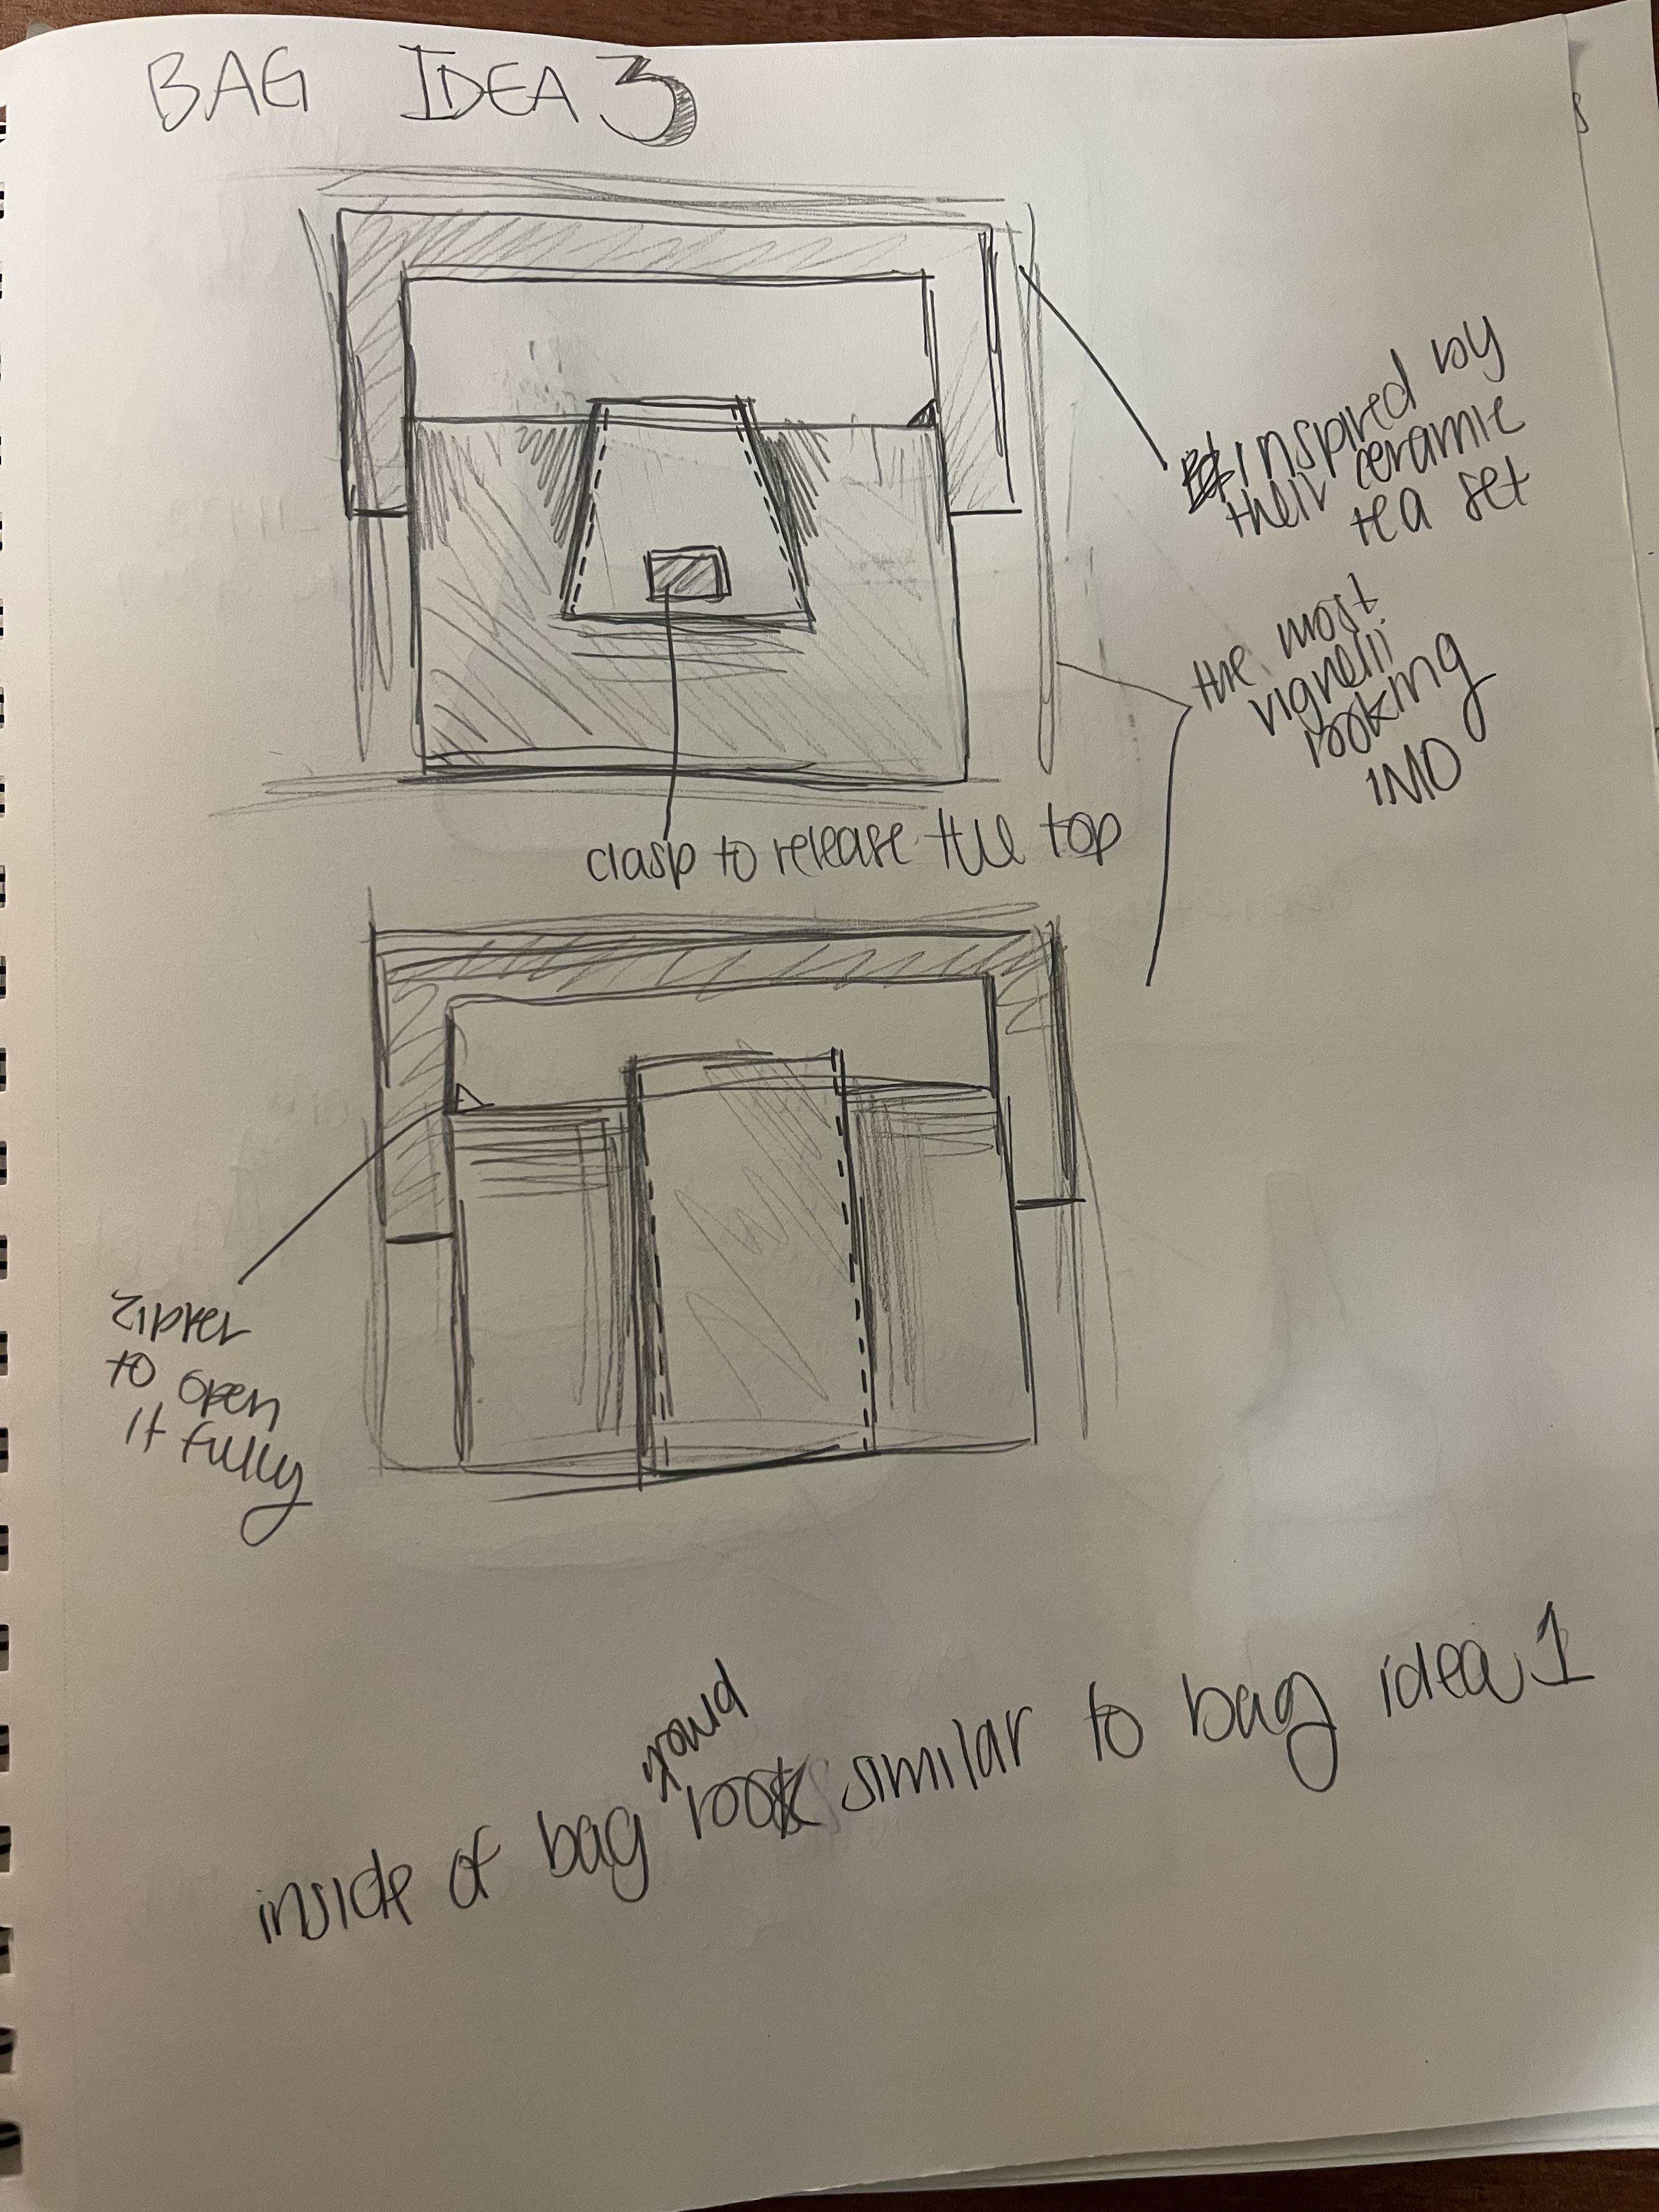 BAG IDEA 3
inspired by
their ceramic
tea set
the most
vignelli
looking
IMO
clasp to release the top
zipper
to open
it fully
would
inside of bag look similar to bag idea 1